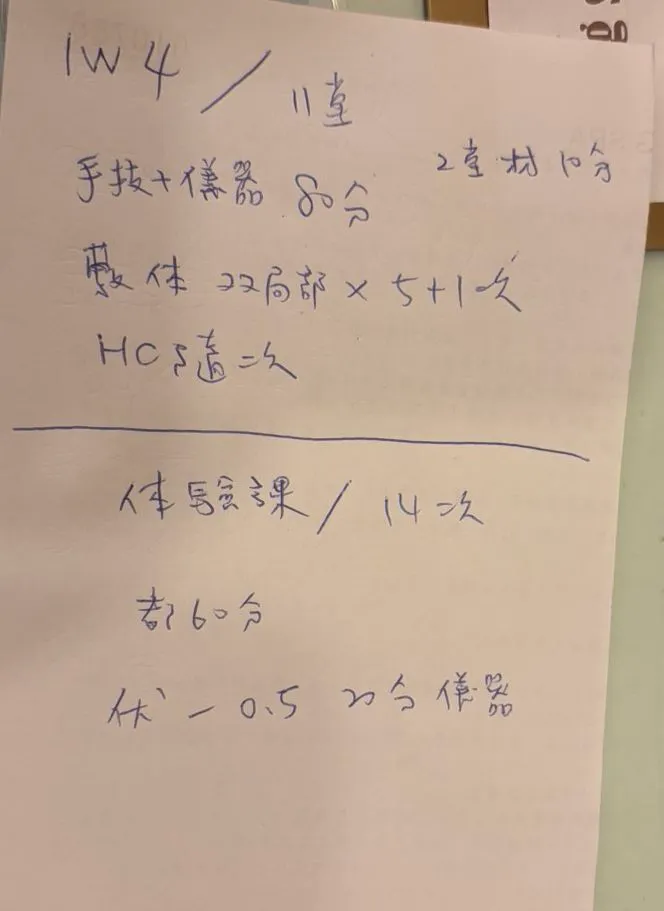 1W4 / 11堂
手技+儀器 80分 2堂 10分
体 22局部 × 5+1次
HC 二次
体驗課 / 14次
都60分
- 0.5 20分 儀器